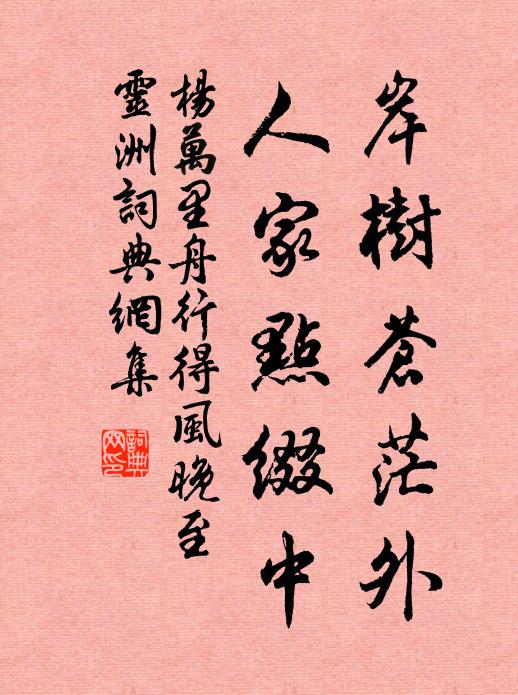 岸樹蒼茫外
人家點綴中
楊萬里舟行得風晚至
靈洲詞典網集
詞典
网印